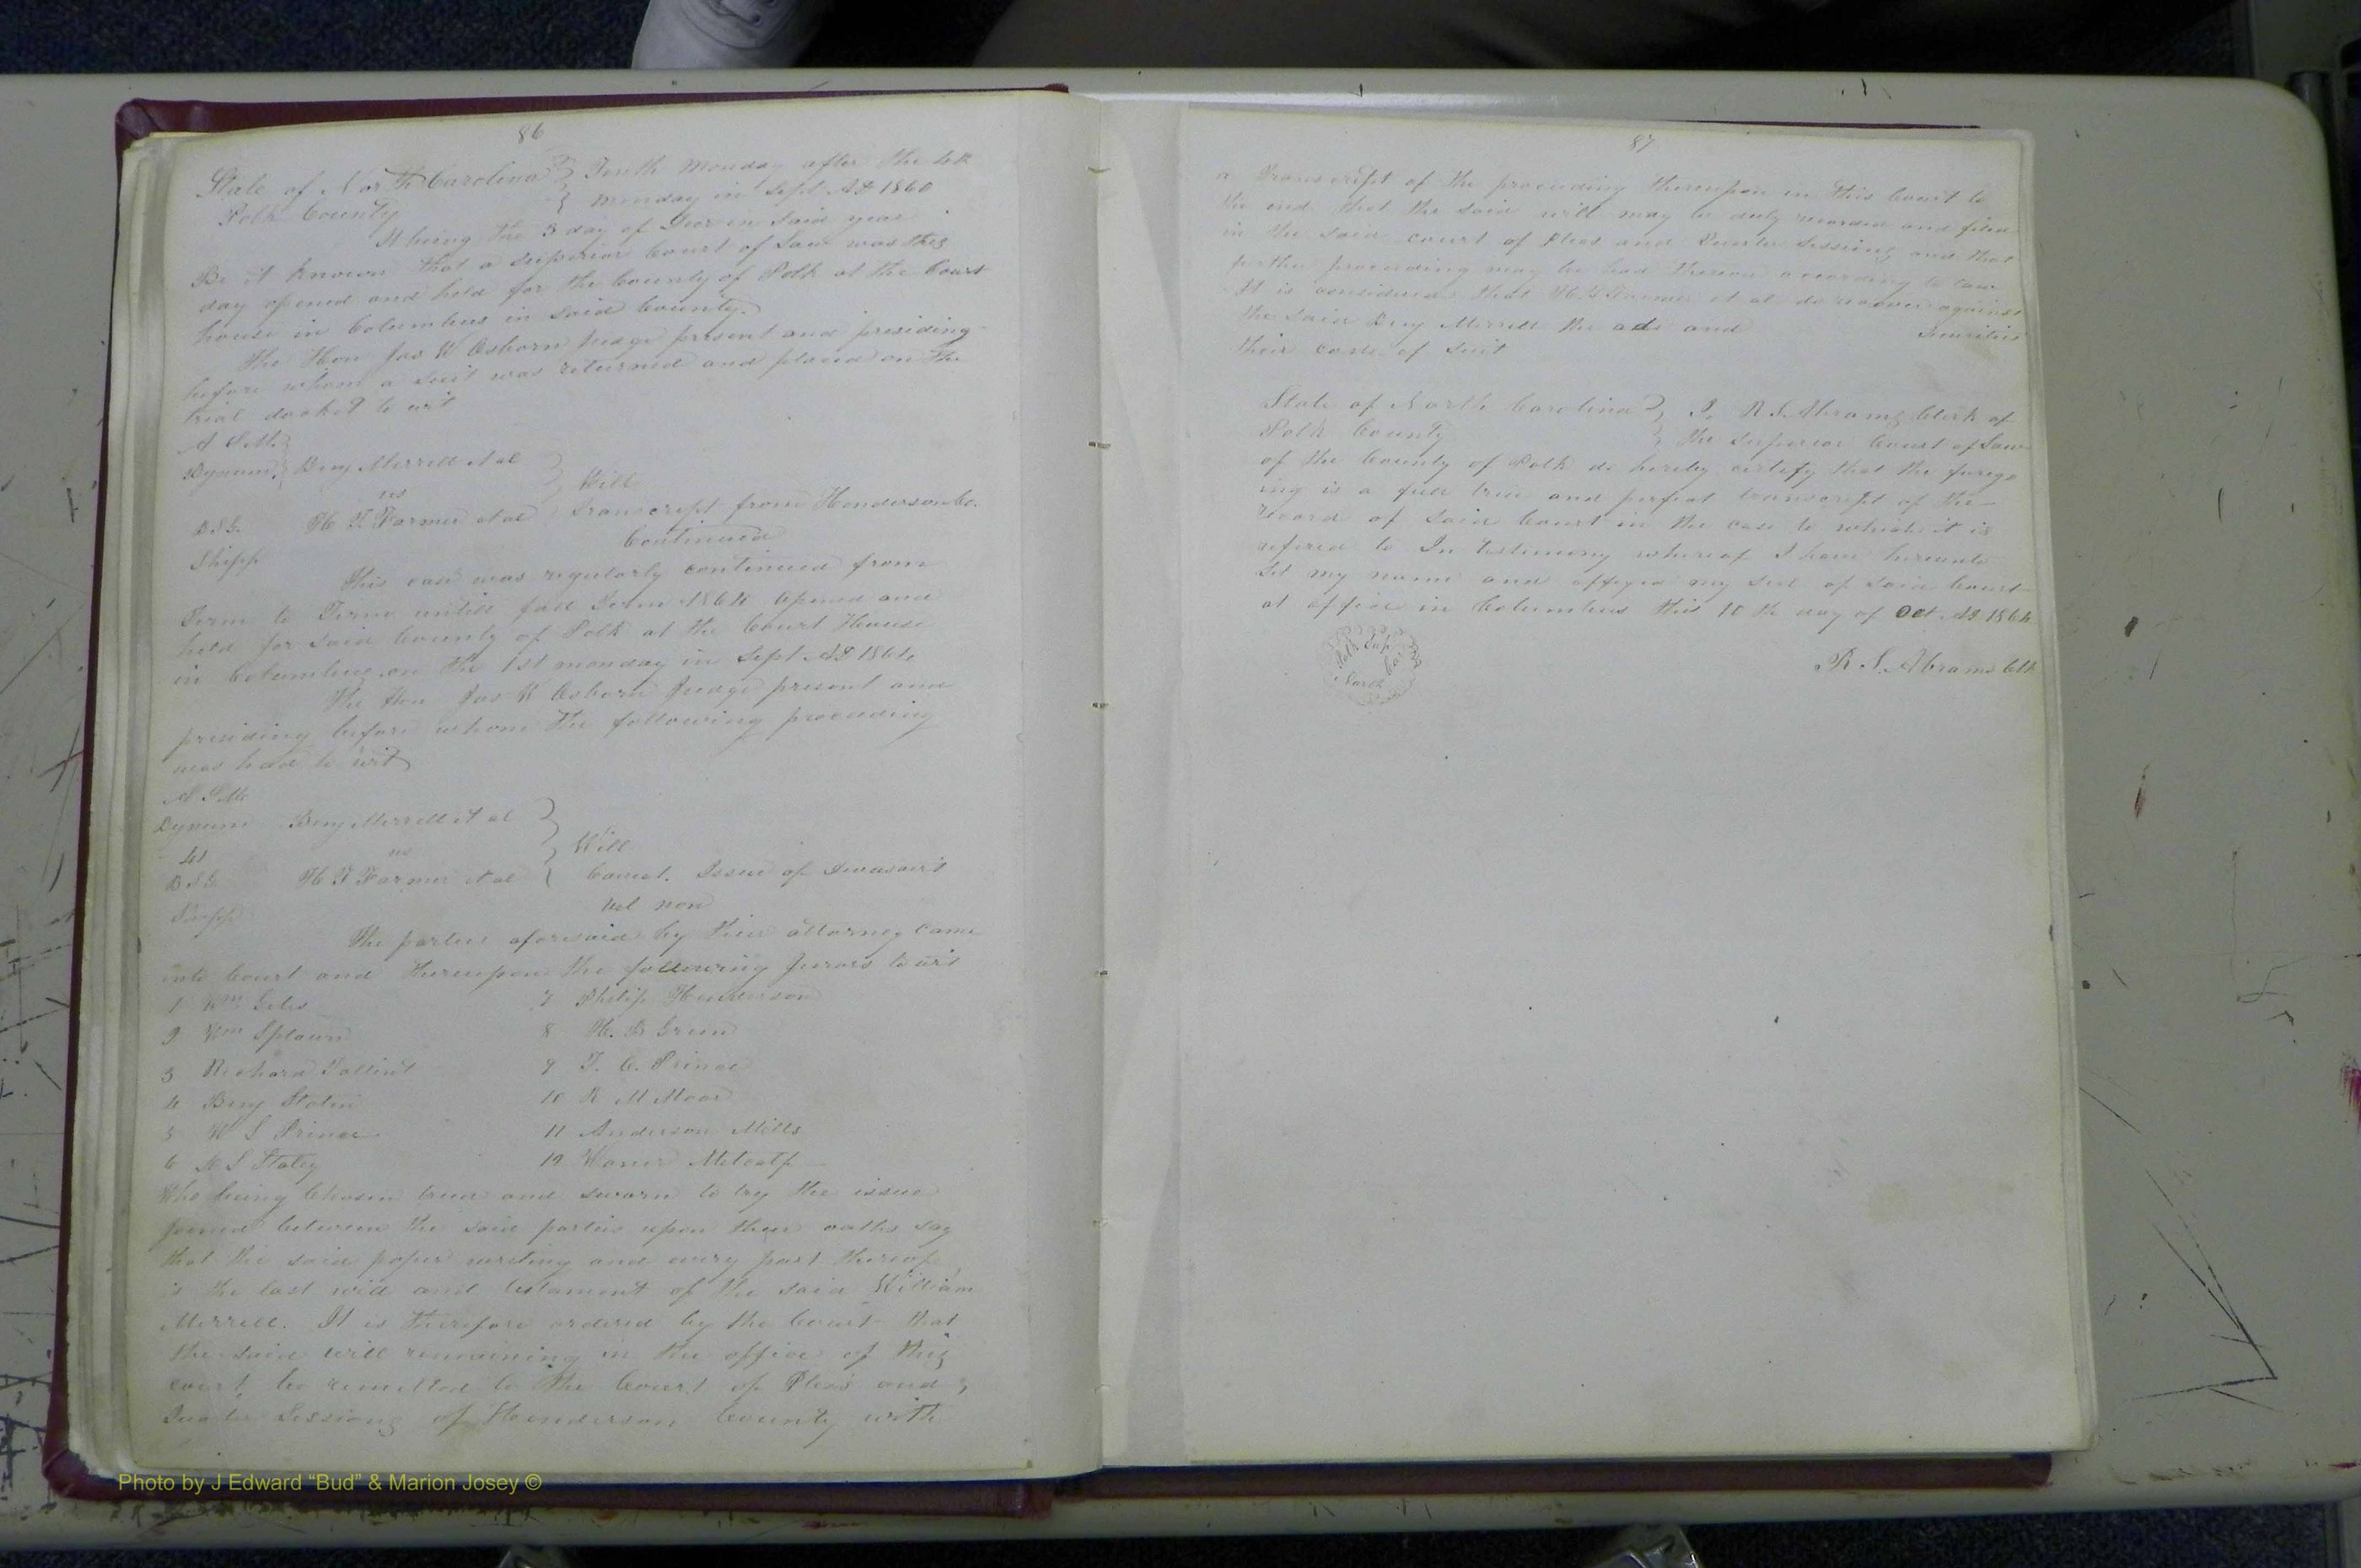 86
State of North Carolina } Tenth Monday after the 4th
Polk County } Monday in Sept AD 1860
It being the 3 day of Dec in said year
Be it known that a superior Court of Law was this
day opened and held for the County of Polk at the Court
house in Columbus in said County.
The Hon Jas W Osborn Judge present and presiding
before whom a suit was returned and placed on the
trial docket to wit
A S M.
Bynum. Benj Merrell et al } Will
vs
B S G. H T Farmer et al transcript from Henderson Co.
Shipp Continued
This case was regularly continued from
Term to Term untill fall Term 1864 opened and
held for said County of Polk at the Court House
in Columbus on the 1st monday in Sept AD 1864
The Hon Jas W Osborn Judge present and
presiding before whom the following proceeding
was had to wit
A S M
Bynum Benj Merrell et al
vs Will
B S G. H T Farmer et al Caveat. Issue of
Shipp vel non
The parties aforesaid by their attorney came
into Court and thereupon the following Jurors to wit
1 Wm Giles 7 Philip Henderson
2 Wm Splawn 8 H. B Green
3 Richard 9 T. C. Prince
4 Benj 10 R M Moor
5 W S Prince 11 Anderson Mills
6 Staley 12 Metcalf
Who being Chosen tried and sworn to try the issue
joined between the said parties upon their oaths say
that the said paper writing and every part thereof
is the last will and testament of the said William
Merrell. It is therefore ordered by the Court that
the said will remaining in the office of this
court be remitted to the Court of Pleas and
Quarter Sessions of Henderson County with
87
a Transcript of the proceeding thereupon in this Court to
the end that the said will may be duly recorded and filed
in the said court of Pleas and Quarter Sessions and that
further proceeding may be had thereon according to law
It is considered that H T Farmer et al do recover against
the said Benj Merrell the and Securities
their costs of suit
State of North Carolina } I, R S. Abrams Clerk of
Polk County } the Superior Court of Law
of the County of Polk do hereby certify that the forego
ing is a full true and perfect transcript of the
record of said Court in the case to which it is
refered to In Testimony whereof I have hereunto
set my name and affixed my seal of said Court
at office in Columbus this 10 th day of Oct AD 1864
Polk Sup
North Car
R. S. Abrams Clk
Photo by J Edward “Bud” & Marion Josey ©